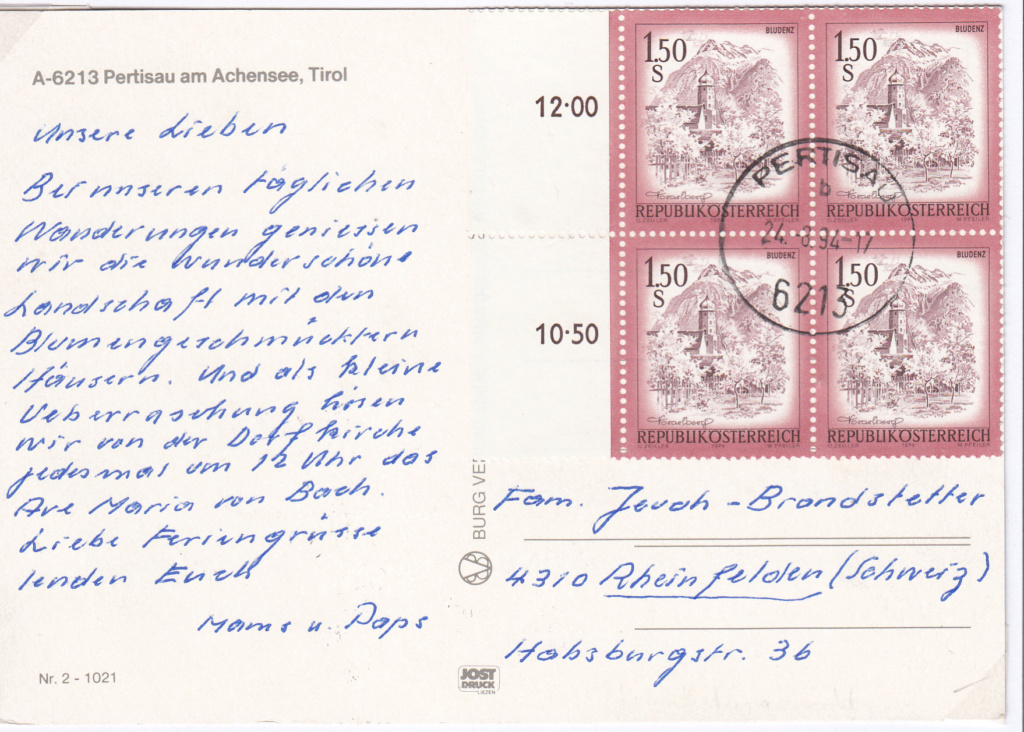 A-6213 Pertisau am Achensee, Tirol
Unsere Lieben
Bei unseren täglichen
Wanderungen geniessen
wir die wunderschöne
Landschaft mit den
Blumengeschmückten
Häusern. Und als kleine
Ueberraschung hören
wir von der Dorfkirche
jedesmal um 12 Uhr das
Ave Maria von Bach.
Liebe Feriengrüsse
senden Euch
Mams u. Paps
Nr. 2 - 1021
12·00
10·50
1.50
S
BLUDENZ
REPUBLIK ÖSTERREICH
1.50
S
BLUDENZ
REPUBLIK ÖSTERREICH
1.50
S
BLUDENZ
REPUBLIK ÖSTERREICH
1.50
S
BLUDENZ
REPUBLIK ÖSTERREICH
PERTISAU
b
24.-8.94-17
6213
BURG VE
Fam. Jeuch-Brandstetter
4310 Rheinfelden (Schweiz)
Habsburgstr. 36
JOST
DRUCK
LIEZEN